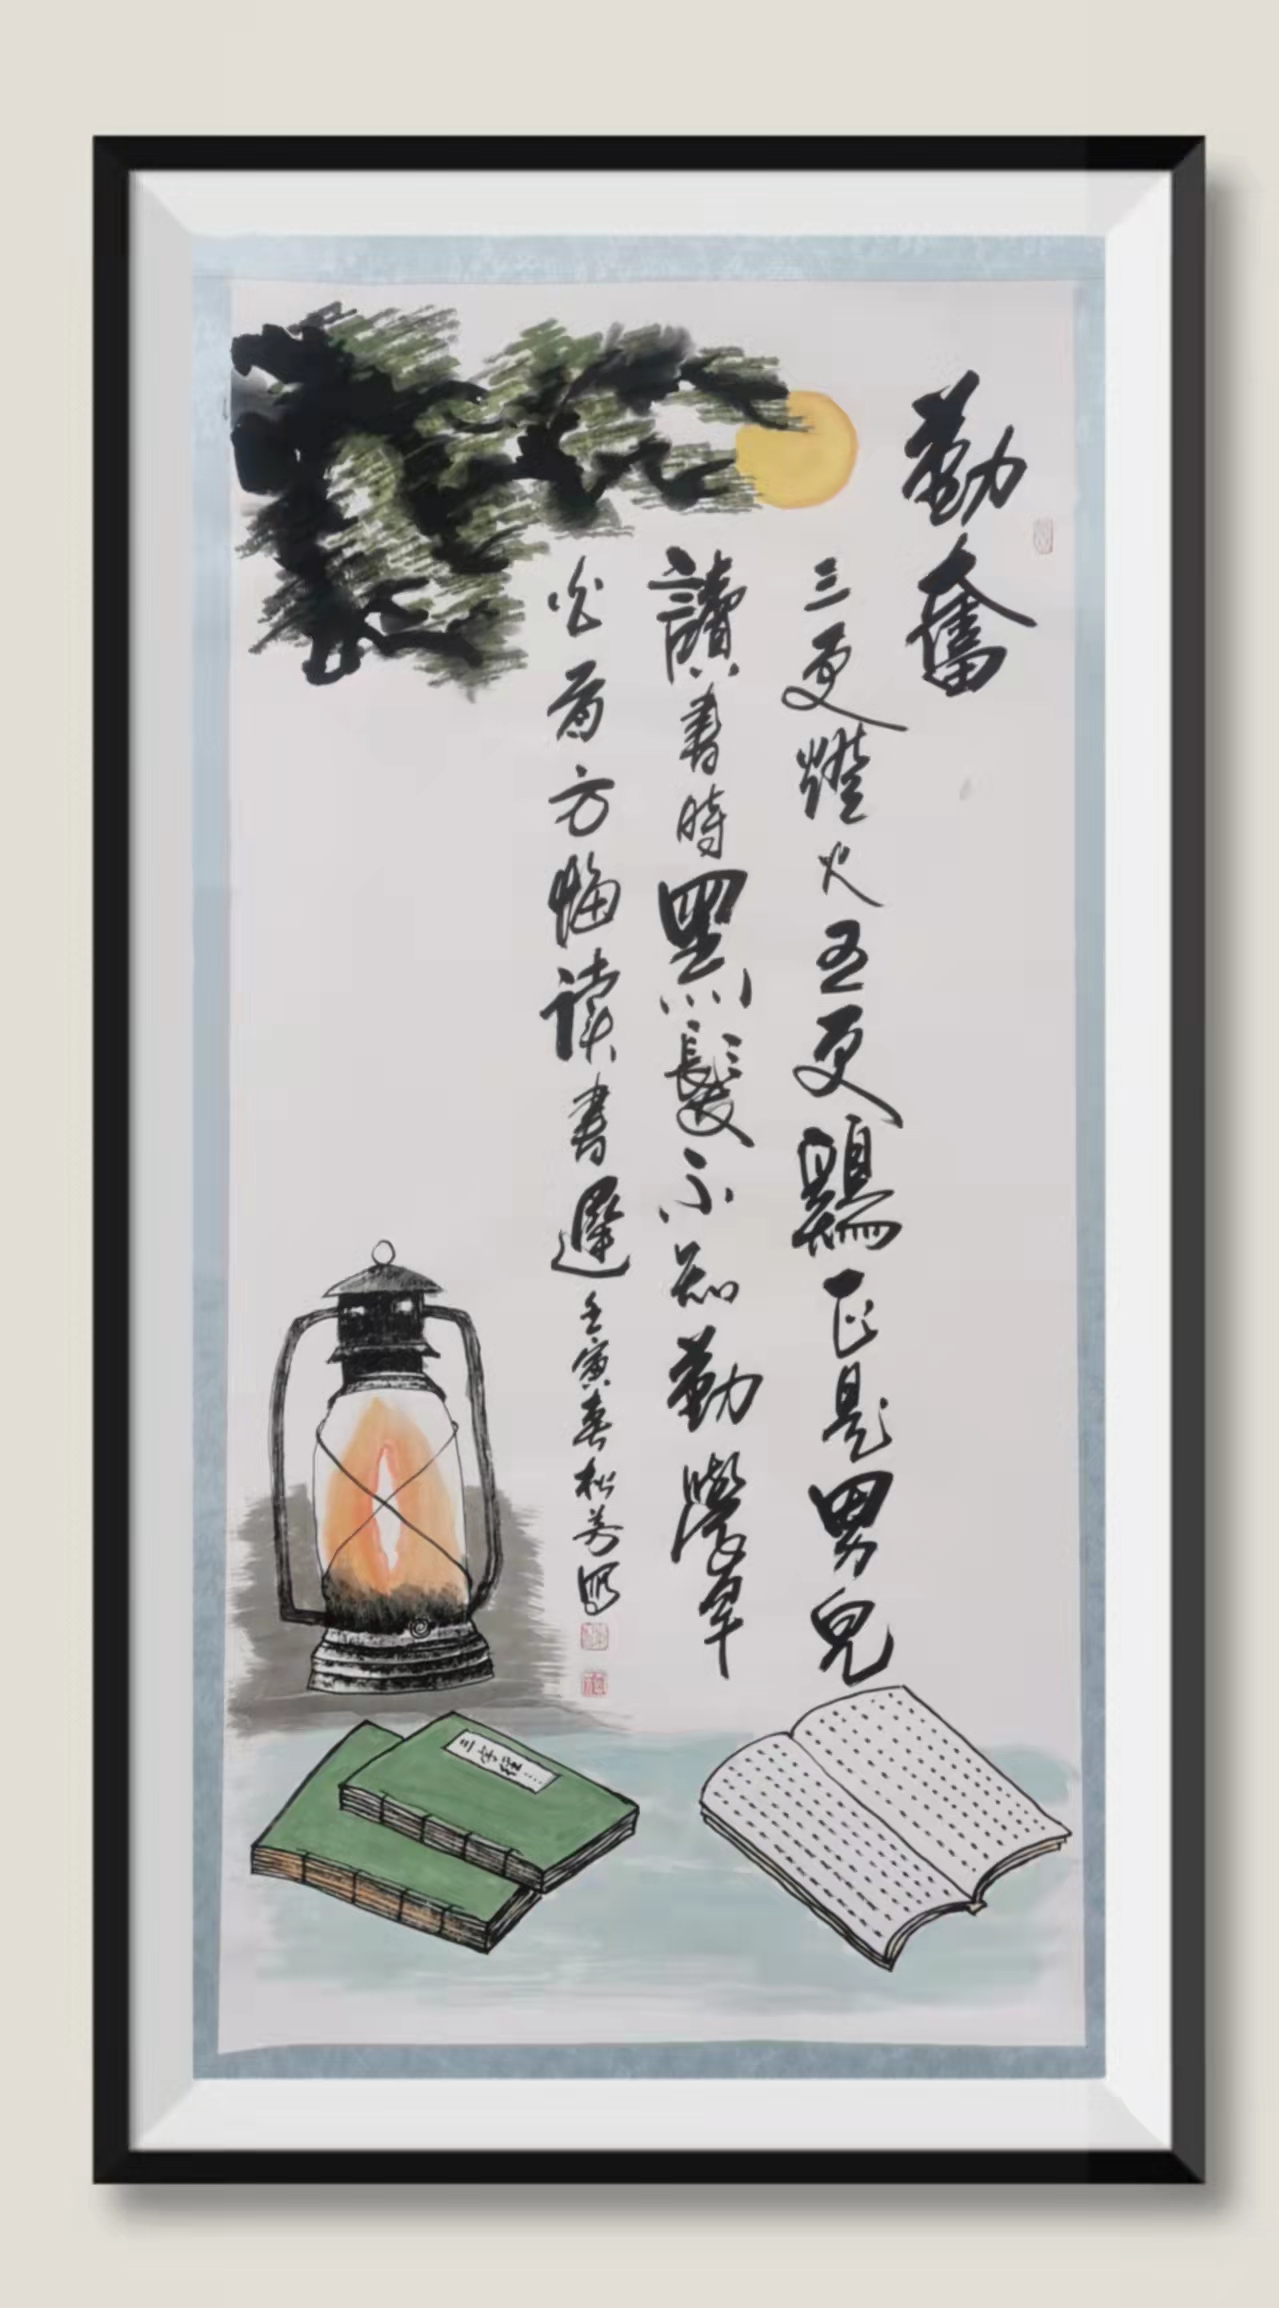 勤奮
三更燈火五更鷄正是男兒
讀書時黑髮不知勤學早
白首方悔读書遲 壬寅春松
三字經